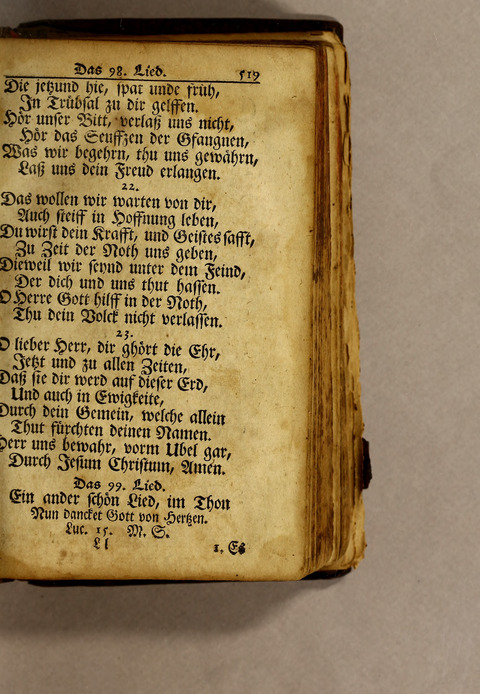 Das 98. Lied. 519
Die jetzund hie, spat unde früh,
In Trübsal zu dir gelffen.
Hör unser Bitt, verlaß uns nicht,
Hör das Seuffzen der Gfangnen,
Was wir begehrn, thu uns gewährn,
Laß uns dein Freud erlangen.
22.
Das wollen wir warten von dir,
Auch steiff in Hoffnung leben,
Du wirst dein Krafft, und Geistes safft,
Zu Zeit der Noth uns geben,
Dieweil wir seynd unter dem Feind,
Der dich und uns thut hassen.
O Herre Gott hilff in der Noth,
Thu dein Volck nicht verlassen.
23.
O lieber Herr, dir ghört die Ehr,
Jetzt und zu allen Zeiten,
Daß sie dir werd auf dieser Erd,
Und auch in Ewigkeite,
Durch dein Gemein, welche allein
Thut fürchten deinen Namen.
Herr uns bewahr, vorm Ubel gar,
Durch Jesum Christum, Amen.
Das 99. Lied.
Ein ander schön Lied, im Thon
Nun dancket Gott von Hertzen.
Luc. 15. M. S.
Ll 1. Es